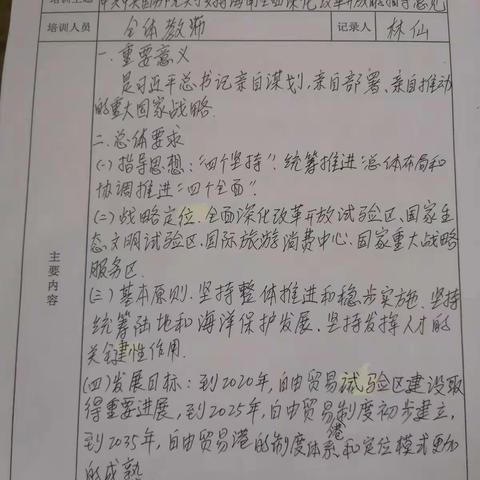 培训主题 中共中央国务院关于支持海南全面深化改革开放的指导意见
培训人员 全体教师 记录人 林仙
主要内容
一.重要意义
是习近平总书记亲自谋划,亲自部署、亲自推动
的重大国家战略.
二.总体要求
(一)指导思想:"四个坚持",统筹推进"总体布局和
协调推进"四个全面".
(二)战略定位.全面深化改革开放试验区、国家生
态文明试验区、国际旅游消费中心、国家重大战略
服务区.
(三)基本原则.坚持整体推进和稳步实施.坚持
统筹陆地和海洋保护发展.坚持发挥人才的
关键性作用.
(四)发展目标:到2020年,自由贸易试验区建设取
得重要进展,到2025年,自由贸易港制度初步建立,
到2035年,自由贸易港的制度体系和运作模式更加
的成熟